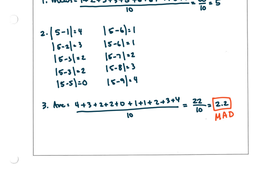 10 = 10 = 5
2. |5-1|=4 |5-6|=1
|5-2|=3 |5-6|=1
|5-3|=2 |5-7|=2
|5-3|=2 |5-8|=3
|5-5|=0 |5-9|=4
3. Ave = 4+3+2+2+0+1+1+2+3+4 = 22 = 2.2
10 10 MAD